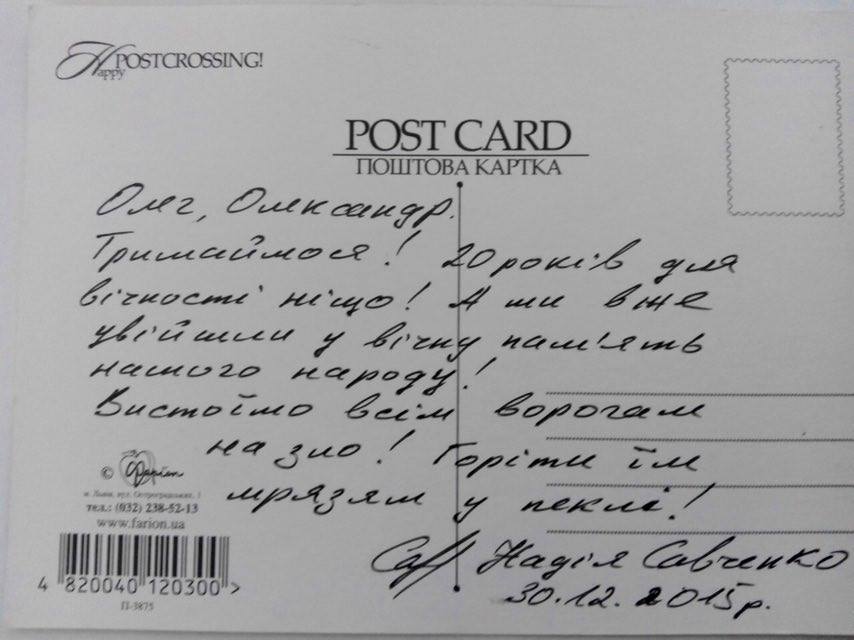 Happy POSTCROSSING!
POST CARD
ПОШТОВА КАРТКА
Олег, Олександр.
Тримаймося! 20 років для
вічності ніщо! А ми вже
увійшли у вічну пам'ять
нашого народу!
Вистоїмо всім ворогам
на зло! Горіти їм
мрязям у пеклі!
Надія Савченко
30.12.2015р.
© Farion
м. Львів, вул. Остроградських, 1
тел.: (032) 238-52-13
www.farion.ua
4 820040 120300 >
П-3875